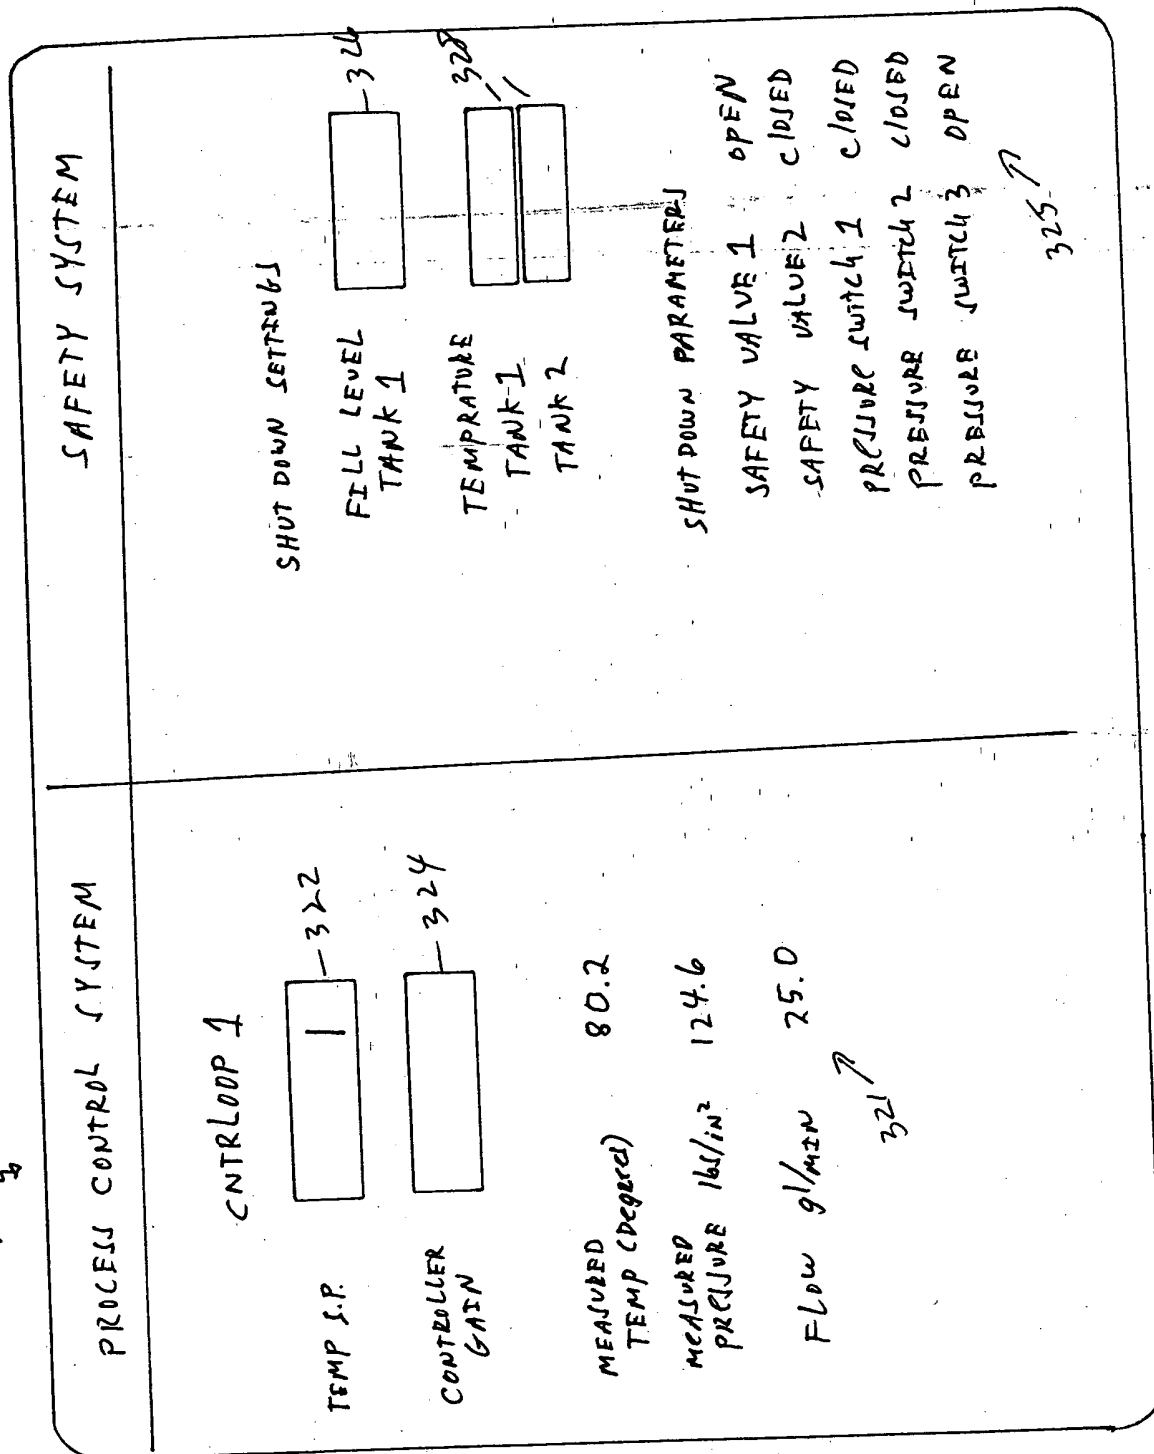 PROCESS CONTROL SYSTEM
CNTRLOOP 1
TEMP S.P.
322
CONTROLLER
GAIN
324
MEASURED
TEMP (Degrees) 80.2
MEASURED
PRESSURE lbs/in² 124.6
FLOW gl/MIN 25.0
321
SAFETY SYSTEM
SHUT DOWN SETTINGS
FILL LEVEL
TANK 1
326
TEMPRATURE
TANK-1
TANK 2
328
SHUT DOWN PARAMETERS
SAFETY VALVE 1 OPEN
SAFETY VALUE 2 CLOSED
PRESSURE SWITCH 1 CLOSED
PRESSURE SWITCH 2 CLOSED
PRESSURE SWITCH 3 OPEN
325